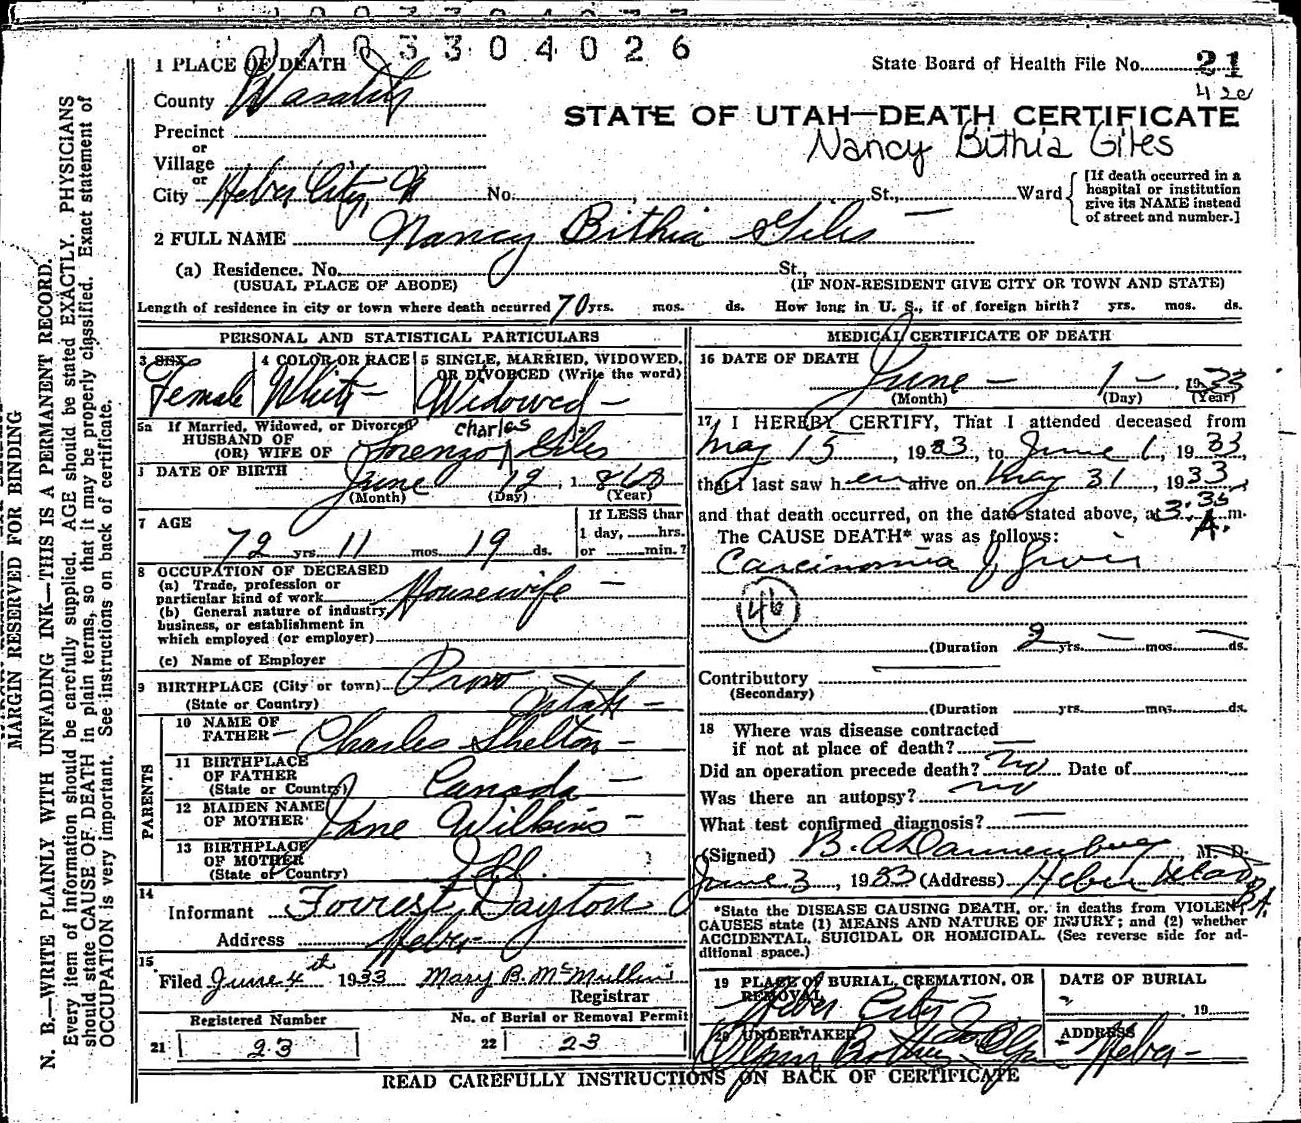 3304026
1 PLACE OF DEATH
State Board of Health File No. 21
420
County Wasatch
STATE OF UTAH—DEATH CERTIFICATE
Precinct
Nancy Bithia Giles
or
Village
or
City Heber City, No. St., Ward
[If death occurred in a hospital or institution give its NAME instead of street and number.]
2 FULL NAME Nancy Bithia Giles —
(a) Residence. No. St.,
(USUAL PLACE OF ABODE) (IF NON-RESIDENT GIVE CITY OR TOWN AND STATE)
Length of residence in city or town where death occurred 70 yrs. mos. ds. How long in U. S., if of foreign birth? yrs. mos. ds.
PERSONAL AND STATISTICAL PARTICULARS
3 SEX 4 COLOR OR RACE 5 SINGLE, MARRIED, WIDOWED,
OR DIVORCED (Write the word)
Female White — Widowed —
5a If Married, Widowed, or Divorced
HUSBAND OF charles
(OR) WIFE OF Lorenzo Giles
DATE OF BIRTH June 12, 1860
(Month) (Day) (Year)
7 AGE
If LESS than
1 day, hrs.
72 yrs. 11 mos. 19 ds. or min.?
8 OCCUPATION OF DECEASED
(a) Trade, profession or
particular kind of work Housewife —
(b) General nature of industry,
business, or establishment in
which employed (or employer)
(c) Name of Employer
9 BIRTHPLACE (City or town) Provo
(State or Country) Utah —
PARENTS
10 NAME OF
FATHER — Charles Shelton —
11 BIRTHPLACE
OF FATHER
(State or Country) Canada —
12 MAIDEN NAME
OF MOTHER Jane Wilkins —
13 BIRTHPLACE
OF MOTHER
(State or Country) Ill.
14
Informant Forrest Dayton
Address Heber
15
Filed June 4th 1933 Mary B. McMullin
Registrar
Registered Number No. of Burial or Removal Permit
21 23 22 23
MEDICAL CERTIFICATE OF DEATH
16 DATE OF DEATH
June — 1 —, 1933
(Month) (Day) (Year)
17 I HEREBY CERTIFY, That I attended deceased from
May 15, 1933, to June 1, 1933,
that I last saw her alive on May 31, 1933,
and that death occurred, on the date stated above, at 3:35 A. m.
The CAUSE DEATH* was as follows:
Carcinoma of
46
(Duration 2 yrs. — mos. — ds.
Contributory
(Secondary)
(Duration yrs. mos. ds.
18 Where was disease contracted
if not at place of death? —
Did an operation precede death? no Date of
Was there an autopsy? no
What test confirmed diagnosis? —
(Signed) B. A. Dannenberg M. D.
June 3, 1933 (Address) Heber
*State the DISEASE CAUSING DEATH, or, in deaths from VIOLENT
CAUSES state (1) MEANS AND NATURE OF INJURY; and (2) whether
ACCIDENTAL, SUICIDAL OR HOMICIDAL. (See reverse side for ad-
ditional space.)
19 PLACE OF BURIAL, CREMATION, OR DATE OF BURIAL
REMOVAL
Heber City 19
20 UNDERTAKER ADDRESS
Heber —
READ CAREFULLY INSTRUCTIONS ON BACK OF CERTIFICATE
MARGIN RESERVED FOR BINDING
N. B.—WRITE PLAINLY WITH UNFADING INK—THIS IS A PERMANENT RECORD.
Every item of information should be carefully supplied. AGE should be stated EXACTLY. PHYSICIANS
should state CAUSE OF DEATH in plain terms, so that it may be properly classified. Exact statement of
OCCUPATION is very important. See instructions on back of certificate.